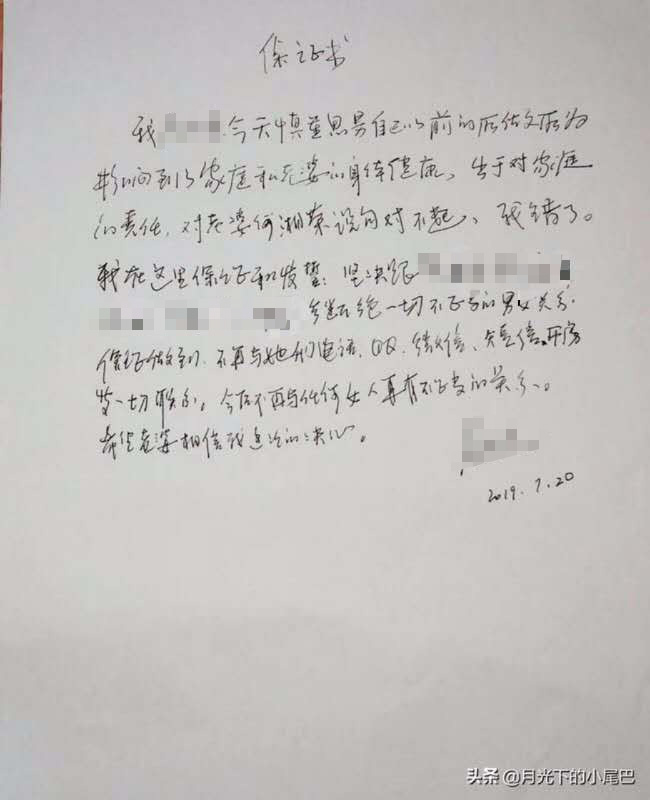 保证书
我 今天慎重思易自己以前的所做所为
影响到了家庭和老婆的身体健康、出于对家庭
的责任,对老婆何湘 说句对不起、我错了。
我在这里保证和发誓:坚决跟
断绝一切不正当的男女关系.
保证做到,不再与她们电话、QQ、微信、短信、开房
等一切联系,今后不再与任何女人再有不正当的关系、
希望老婆相信我这次的决心。
2019.7.20
头条 @月光下的小尾巴